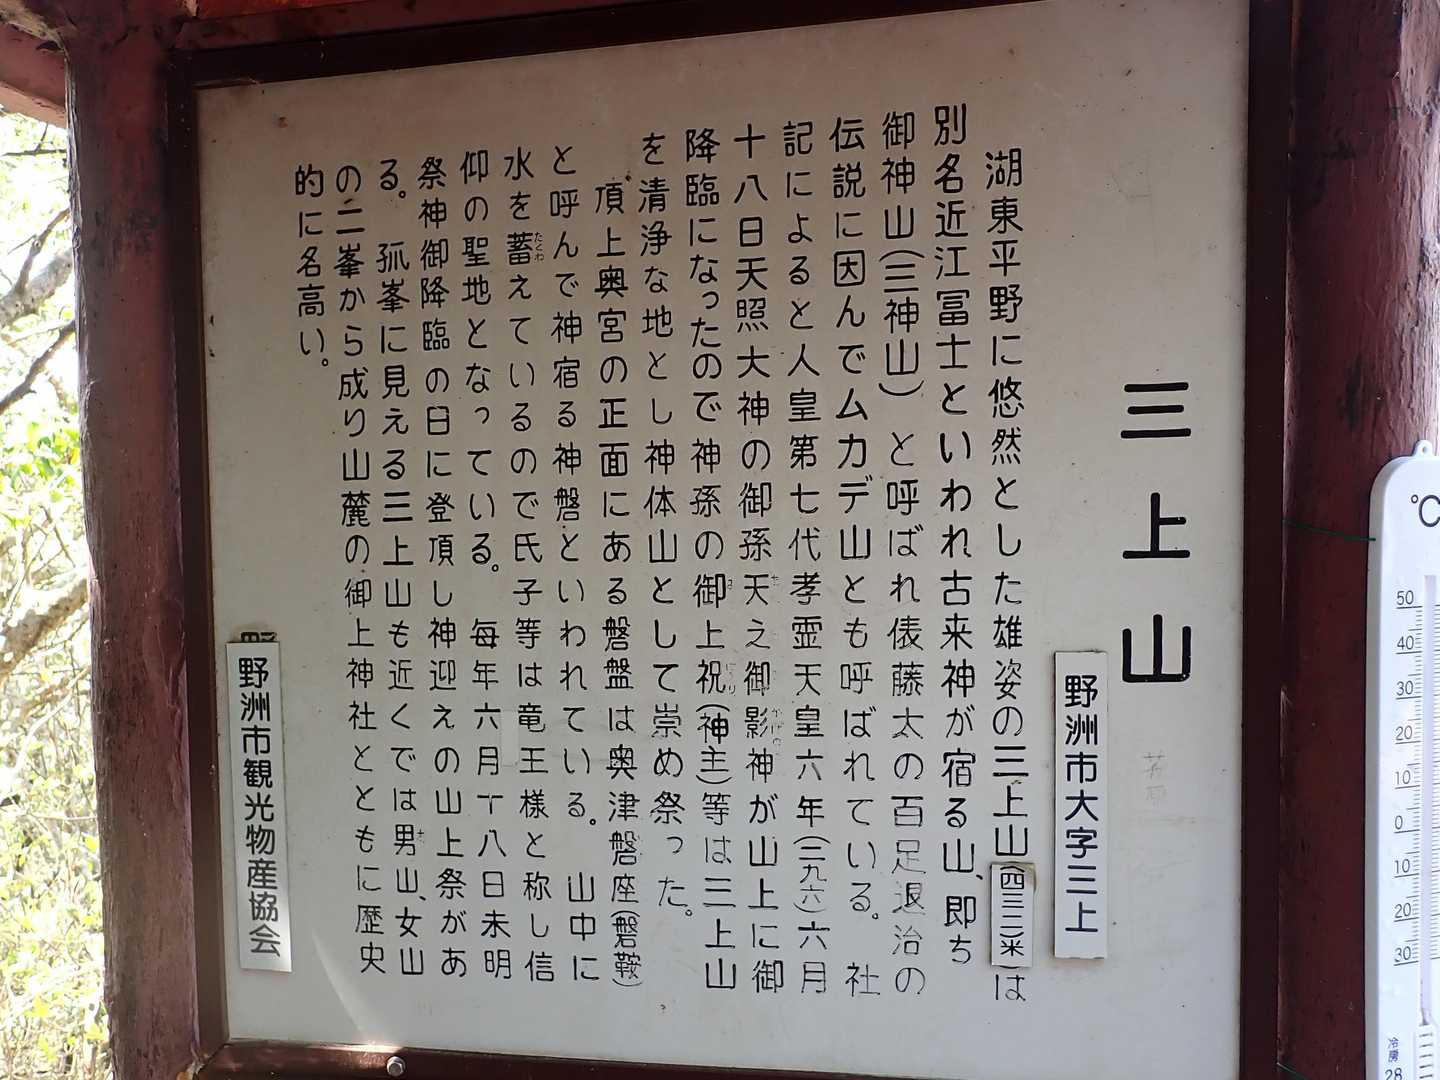 三上山
野洲市大字三上
湖東平野に悠然とした雄姿の三上山(四三二米)は
別名近江冨士といわれ古来神が宿る山、即ち
御神山(三神山)と呼ばれ俵藤太の百足退治の
伝説に因んでムカデ山とも呼ばれている。社
記によると人皇第七代孝霊天皇六年(三九六)六月
十八日天照大神の御孫天之御影神が山上に御
降臨になったので神孫の御上祝(神主)等は三上山
を清浄な地とし神体山として崇め祭った。
頂上奥宮の正面にある磐盤は奥津磐座(磐鞍)
と呼んで神宿る神磐といわれている。山中に
水を蓄えているので氏子等は竜王様と称し信
たくわ
仰の聖地となっている。毎年六月十八日未明
祭神御降臨の日に登頂し神迎えの山上祭があ
る。孤峯に見える三上山も近くでは男山、女山
の二峯から成り山麓の御上神社とともに歴史
的に名高い。
野洲市観光物産協会
℃
50
40
30
20
10
0
10
20
30